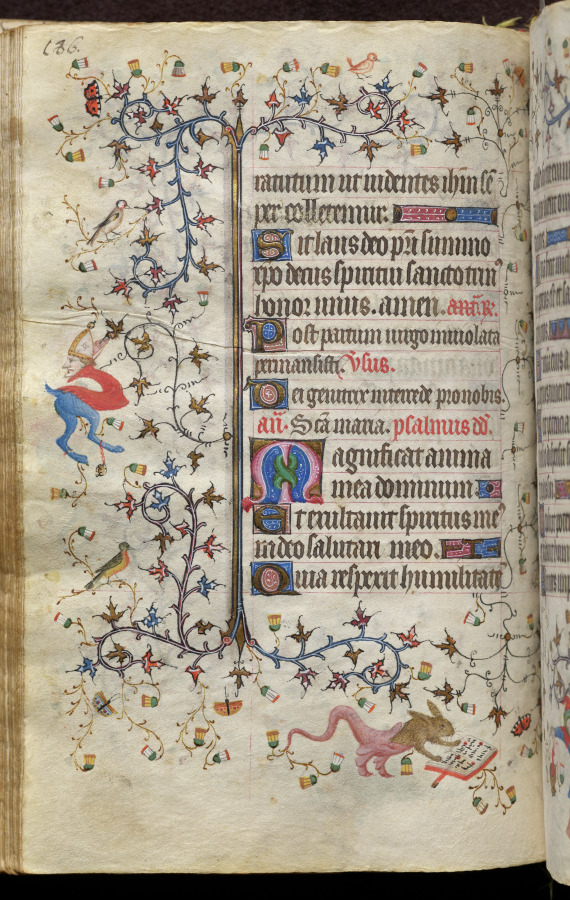 186.
tatutum ut uidentes ihm se
per colletemur.
Sit laus deo pri summo
xpo decus spiritui sancto tri
honor unus. amen. ant. R.
Post partum uirgo inuiolata
permansisti. Vsus.
Dei genitrix intercede pro nobis.
an. Sca maria. psalmus dd.
Magnificat anima
mea dominum.
Et exultauit spiritus me
in deo salutari meo.
Quia respexit humilitate